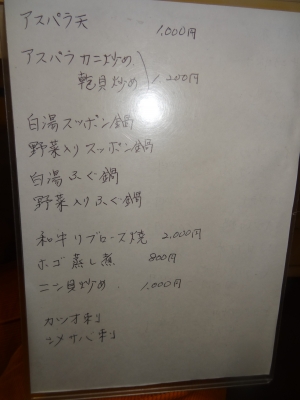 アスパラ天 1,000円
アスパラカニ炒め
乾貝炒め 1,200円
白湯スッポン鍋
野菜入りスッポン鍋
白湯ふぐ鍋
野菜入りふぐ鍋
和牛リブロース焼 2,000円
ホゴ蒸し煮 800円
ニシ貝炒め 1,000円
カツオ刺
シメサバ刺